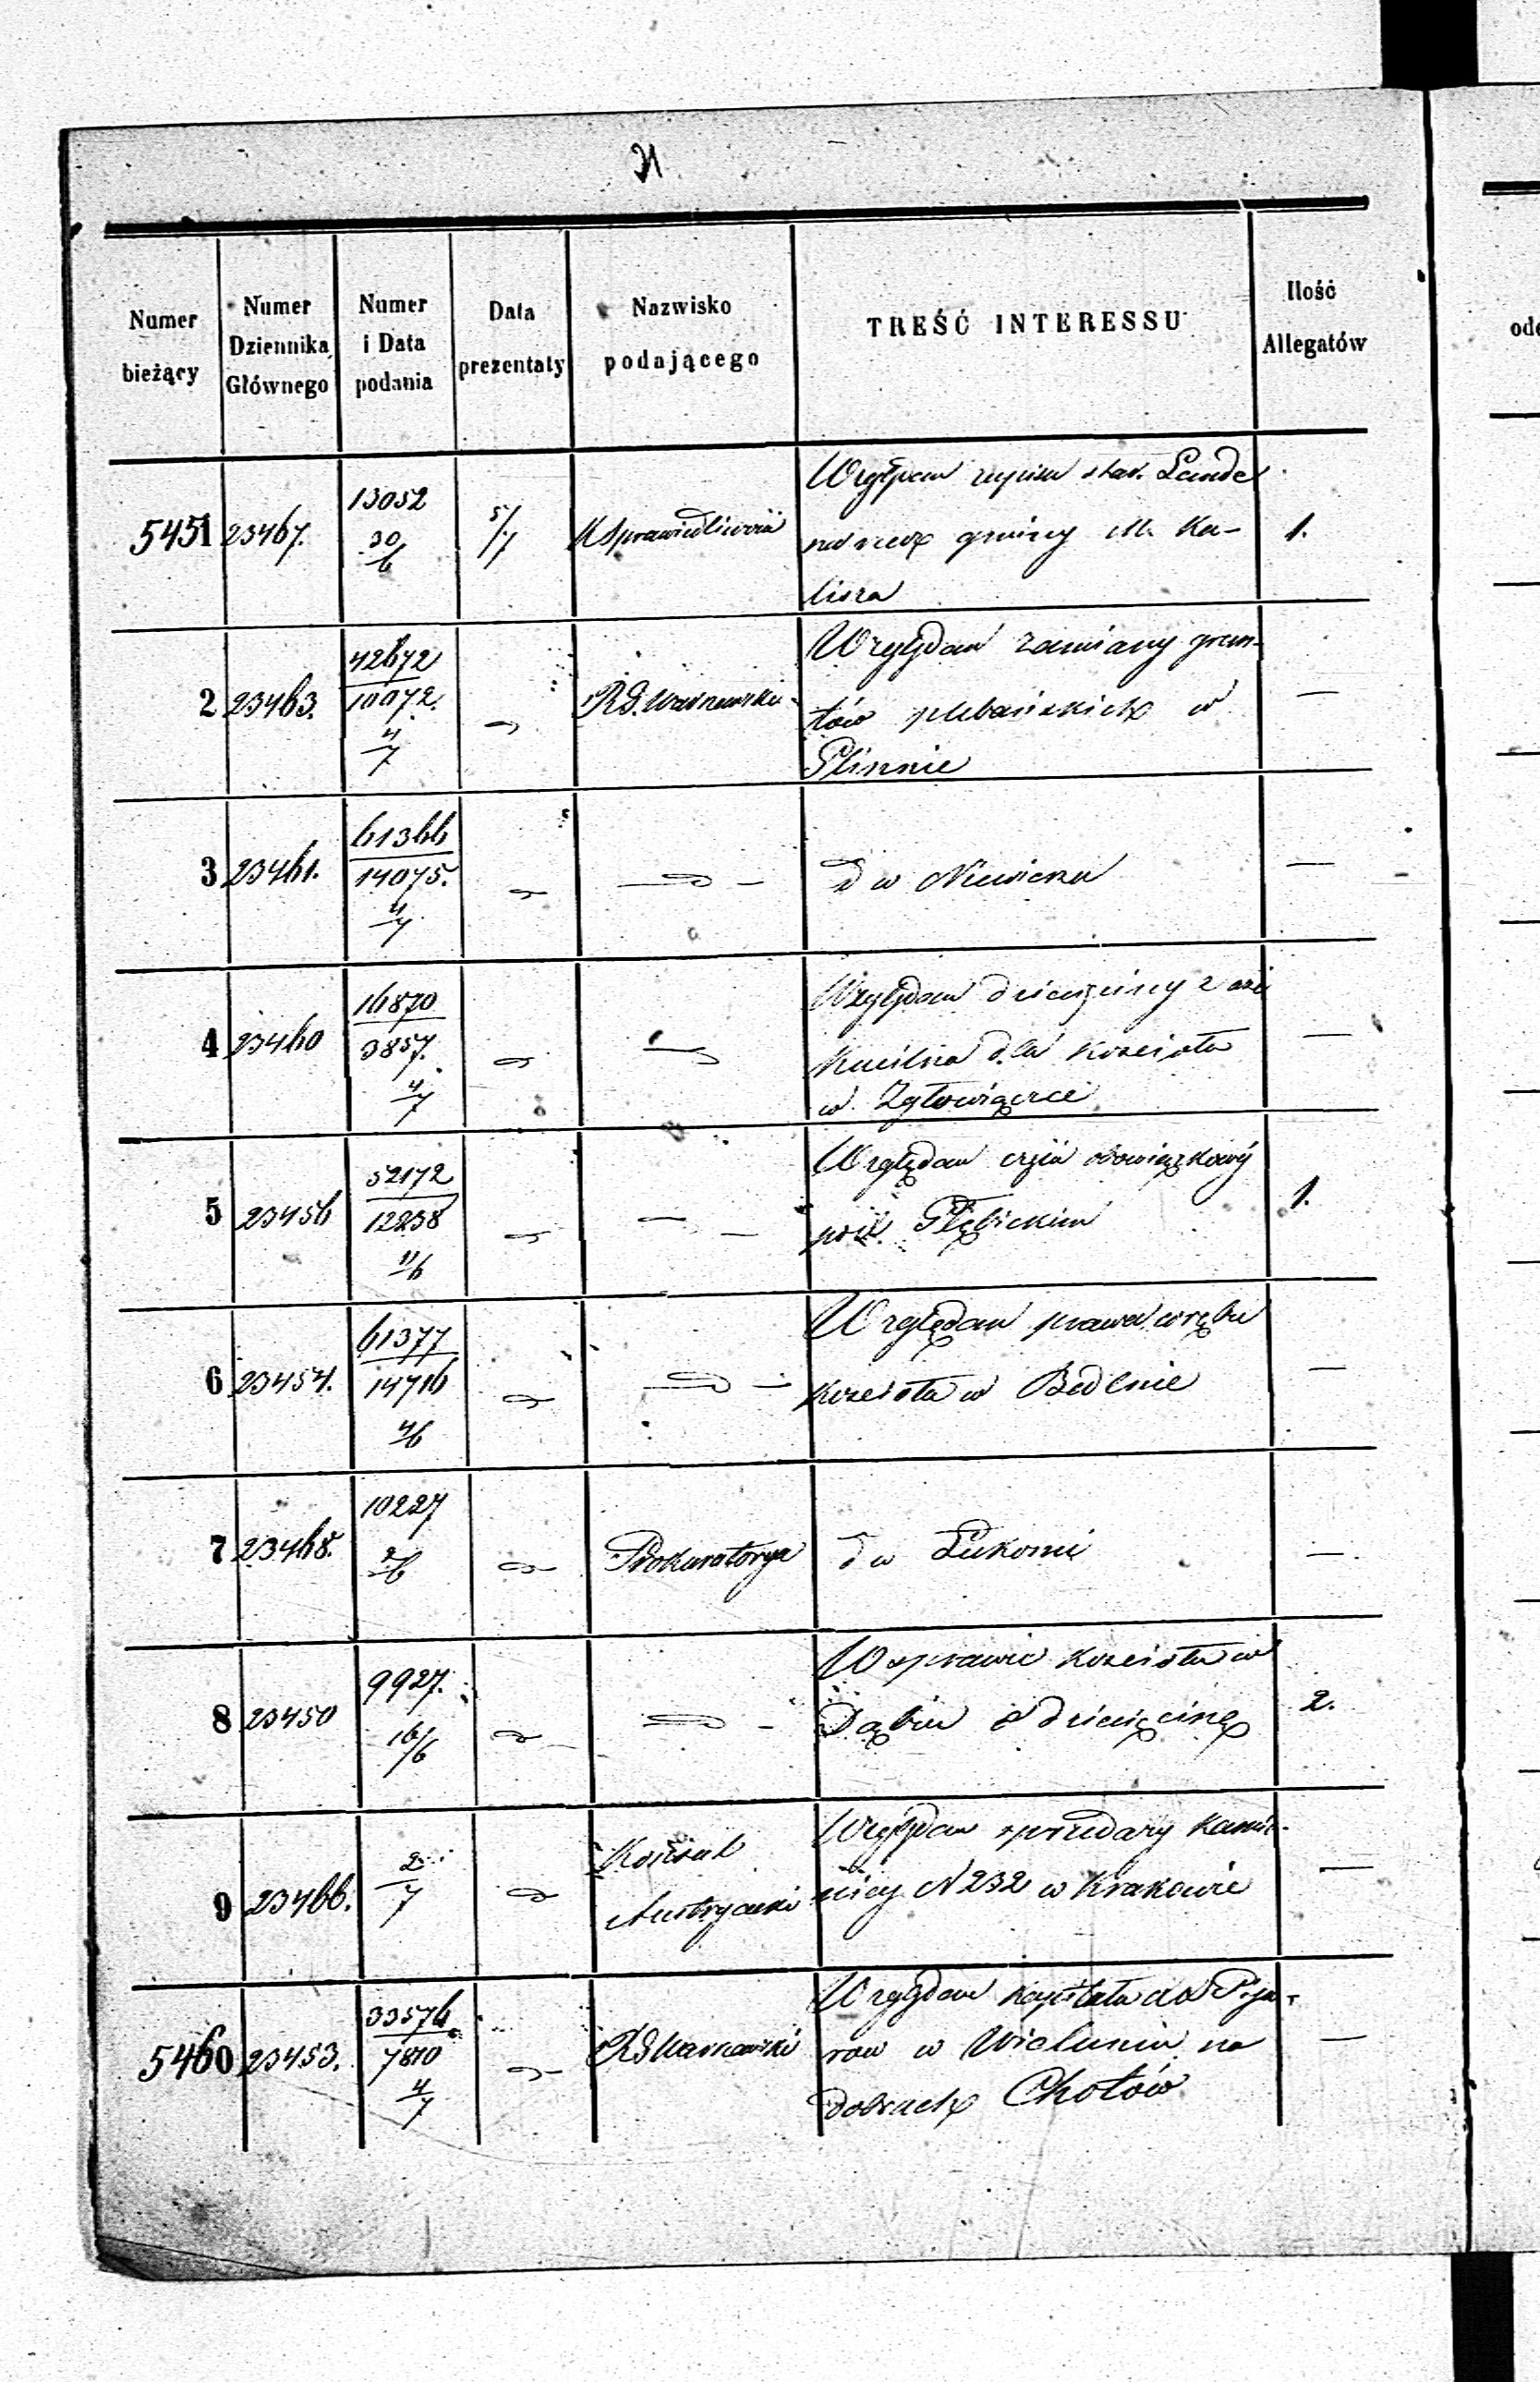 21
Numer bieżący
Numer Dziennika Głównego
Numer i Data podania
Data prezentaty
Nazwisko podającego
TREŚĆ INTERESSU
Ilość Allegatów
5451 23467. 13052 30/6 5/7 K Sprawiedliwości
Względem zapisu star. Lande
na rzecz gminy M. Ka-
lisza
1.
2 23463. 42672 10072. 4/7 RG. Warszawski
Względem zamiany grun-
tów plebańskich w
Glinnie
—
3 23461. 61366 14075. 4/7
d w Niewiesz
—
4 23460 16870 3857. 4/7
Względem dziesięciny z
dla kościoła
w Zgłowiączce
—
5 23456 52172 12238 11/6
Względem obowiązkowy
Głębickim
1.
6 23454. 61377 14716 4/6
Względem prawa wrębu
kościoła w Bedlnie
—
7 23468. 10227 2/6 Prokuratorya
d w Łukomi
—
8 23450 9927. 16/6
W sprawie kościoła w
Dąbiu o dziesięcinę
2.
9 23466. 2/7 Konsul
Austryacki
Względem sprzedaży kamie-
nicy N 232 w Krakowie
—
5460 23453. 33576 7810 4/7 RG Warszawski
Względem kapitału dla Pija-
rów w Wieluniu na
dobrach Chotów
—